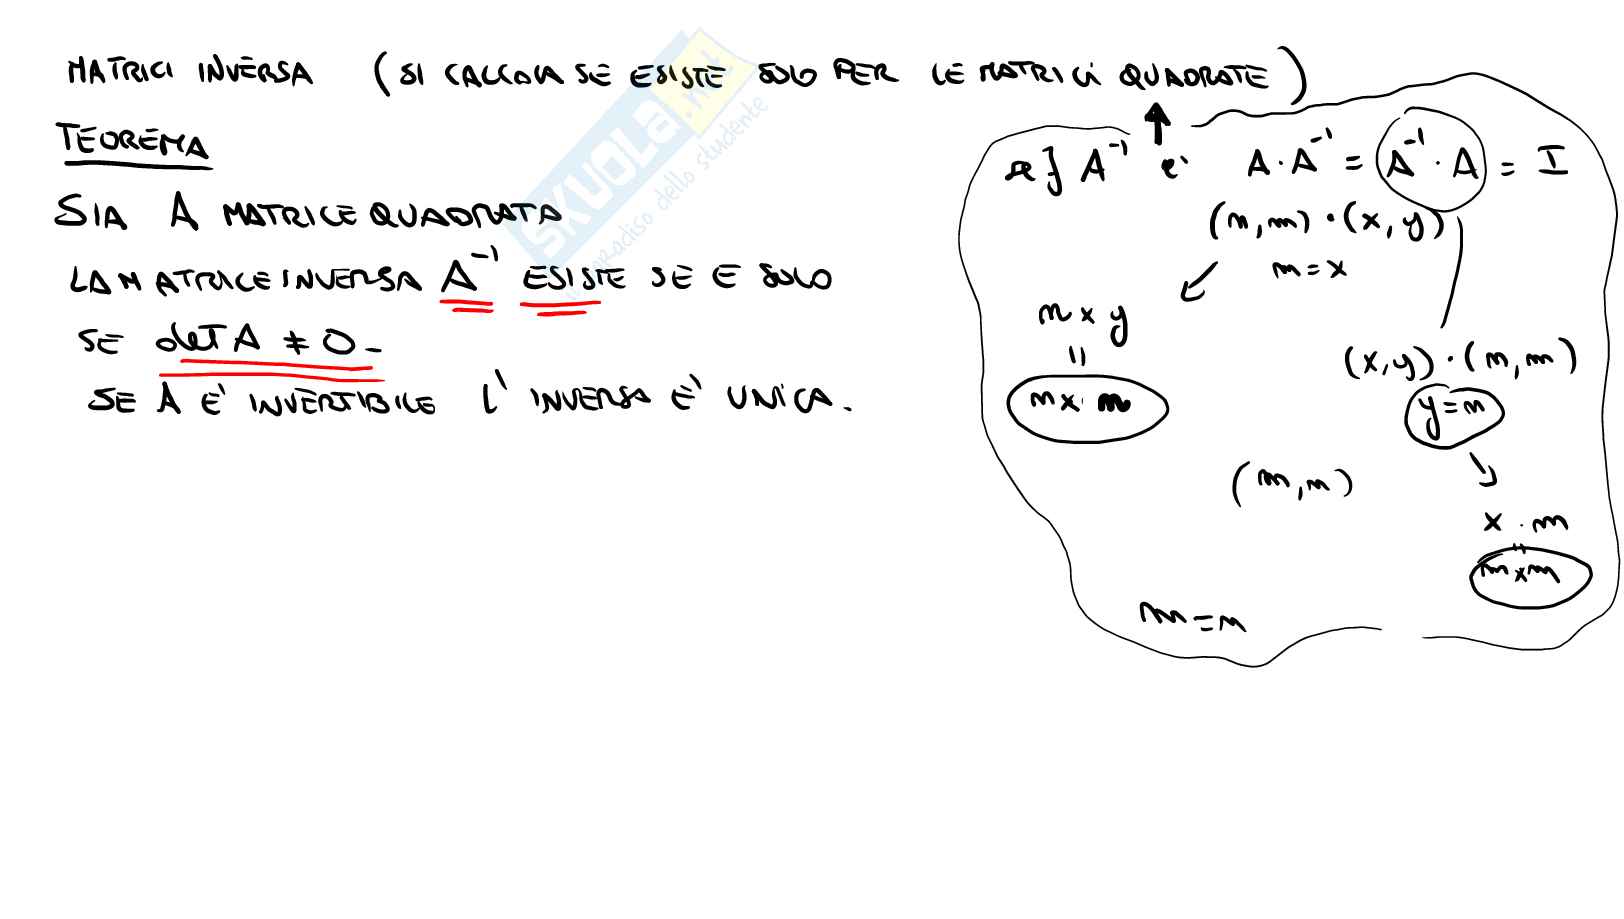 MATRICI INVERSA (SI CALCOLA SE ESISTE SOLO PER LE MATRICI QUADRATE)
TEOREMA
SIA A MATRICE QUADRATA
LA MATRICE INVERSA A⁻¹ ESISTE SE E SOLO
SE det A ≠ 0 -
SE A E' INVERTIBILE L' INVERSA E' UNICA.
se ∃ A⁻¹ e' A · A⁻¹ = A⁻¹ · A = I
(n,m) · (x,y)
m = x
n x y
=
n x m
(x,y) · (n,m)
y = n
(m,n)
x · m
=
m x m
m = n
SKUOLA.net
paradiso dello studente